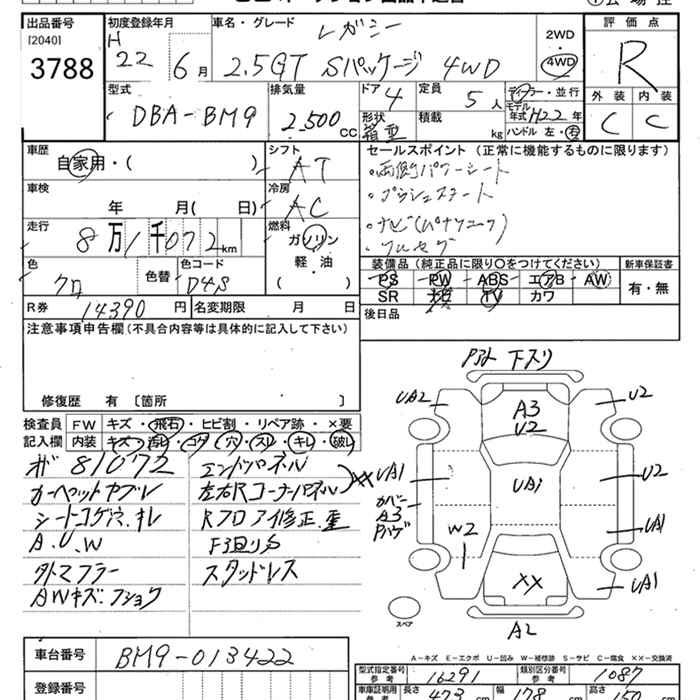 出品番号
[2040]
3788
初度登録年月
H
22 6月
車名・グレード
レガシー
2.5GT Sパッケージ 4WD
2WD
4WD
評価点
R
外装 内装
C C
型式
DBA-BM9
排気量
2,500 cc
ドア
4
形状
箱型
定員
5人
積載
kg
ディーラー・並行
モデル年式 H22年
ハンドル 左・右
車歴
自家用・( )
車検
年 月(日)
走行
8万1千072km
色
クロ
色替
色コード
D4S
シフト
AT
冷房
AC
燃料
ガソリン
軽・油
( )
R券 14390円
名変期限 月 日
セールスポイント(正常に機能するものに限ります)
・両側パワーシート
・プッシュスタート
・ナビ(パナソニック)
・フルセグ
装備品(純正品に限り○をつけてください)
PS PW ABS エアB AW
SR ナビ TV カワ
新車保証書
有・無
後日品
注意事項申告欄(不具合内容等は具体的に記入して下さい)
修復歴 有〔箇所 〕
検査員記入欄
FW キズ・飛石・ヒビ割・リペア跡・×要
内装 キズ・汚レ・コゲ・穴・スレ・キレ・破レ
81072
カーペットヤブレ
シートコゲ穴.キレ
A.U.W
外マフラー
AWキズ.フショク
エンドパネル
左右Rコーナーパネル XX
Rフロア修正.歪
F3回り
スタッドレス
下スリ
UA2
A3
U2
U2
UA1
カバー
A3
UA1
U2
UA1
W2
XX
UA1
A2
スペア
A-キズ E-エクボ U-凹み W-補修跡 S-サビ C-腐食 XX-交換済
車台番号 BM9-013422
登録番号
型式指定番号
参考
16291
類別区分番号
参考
1087
車庫証明用
参考
長さ 473cm
幅 178cm
高さ 150cm